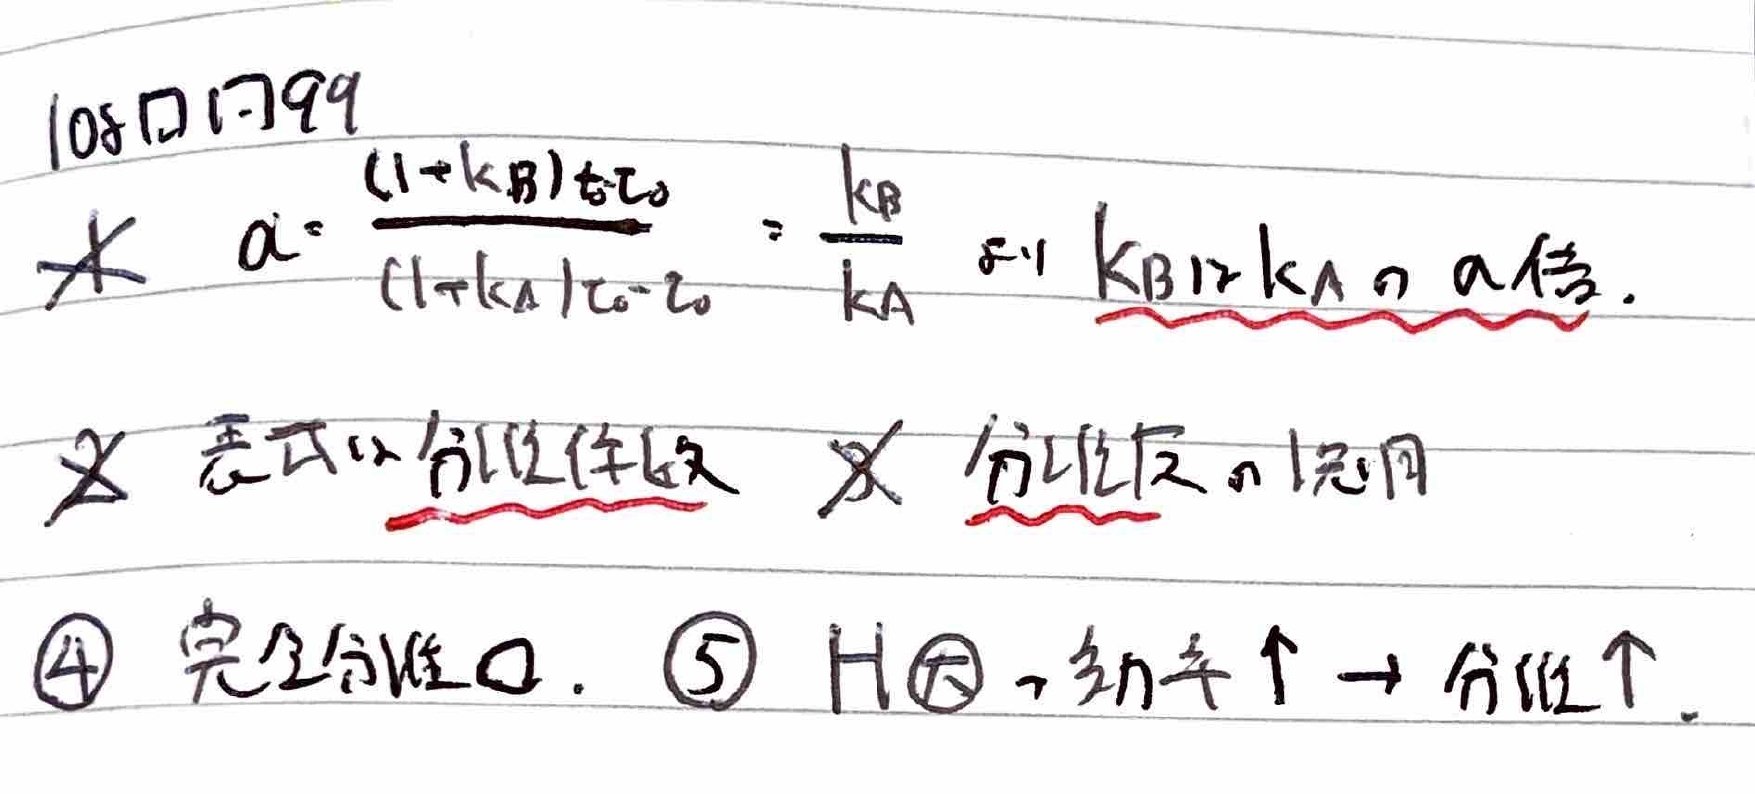 108回問99
1 α = (1+kB)t0-t0 / (1+kA)t0-t0 = kB / kA より kBはkAのα倍.
2 表示は分離係数 3 分離度の説明
④ 完全分離〇. ⑤ H㊅→効率↑→分離↑.